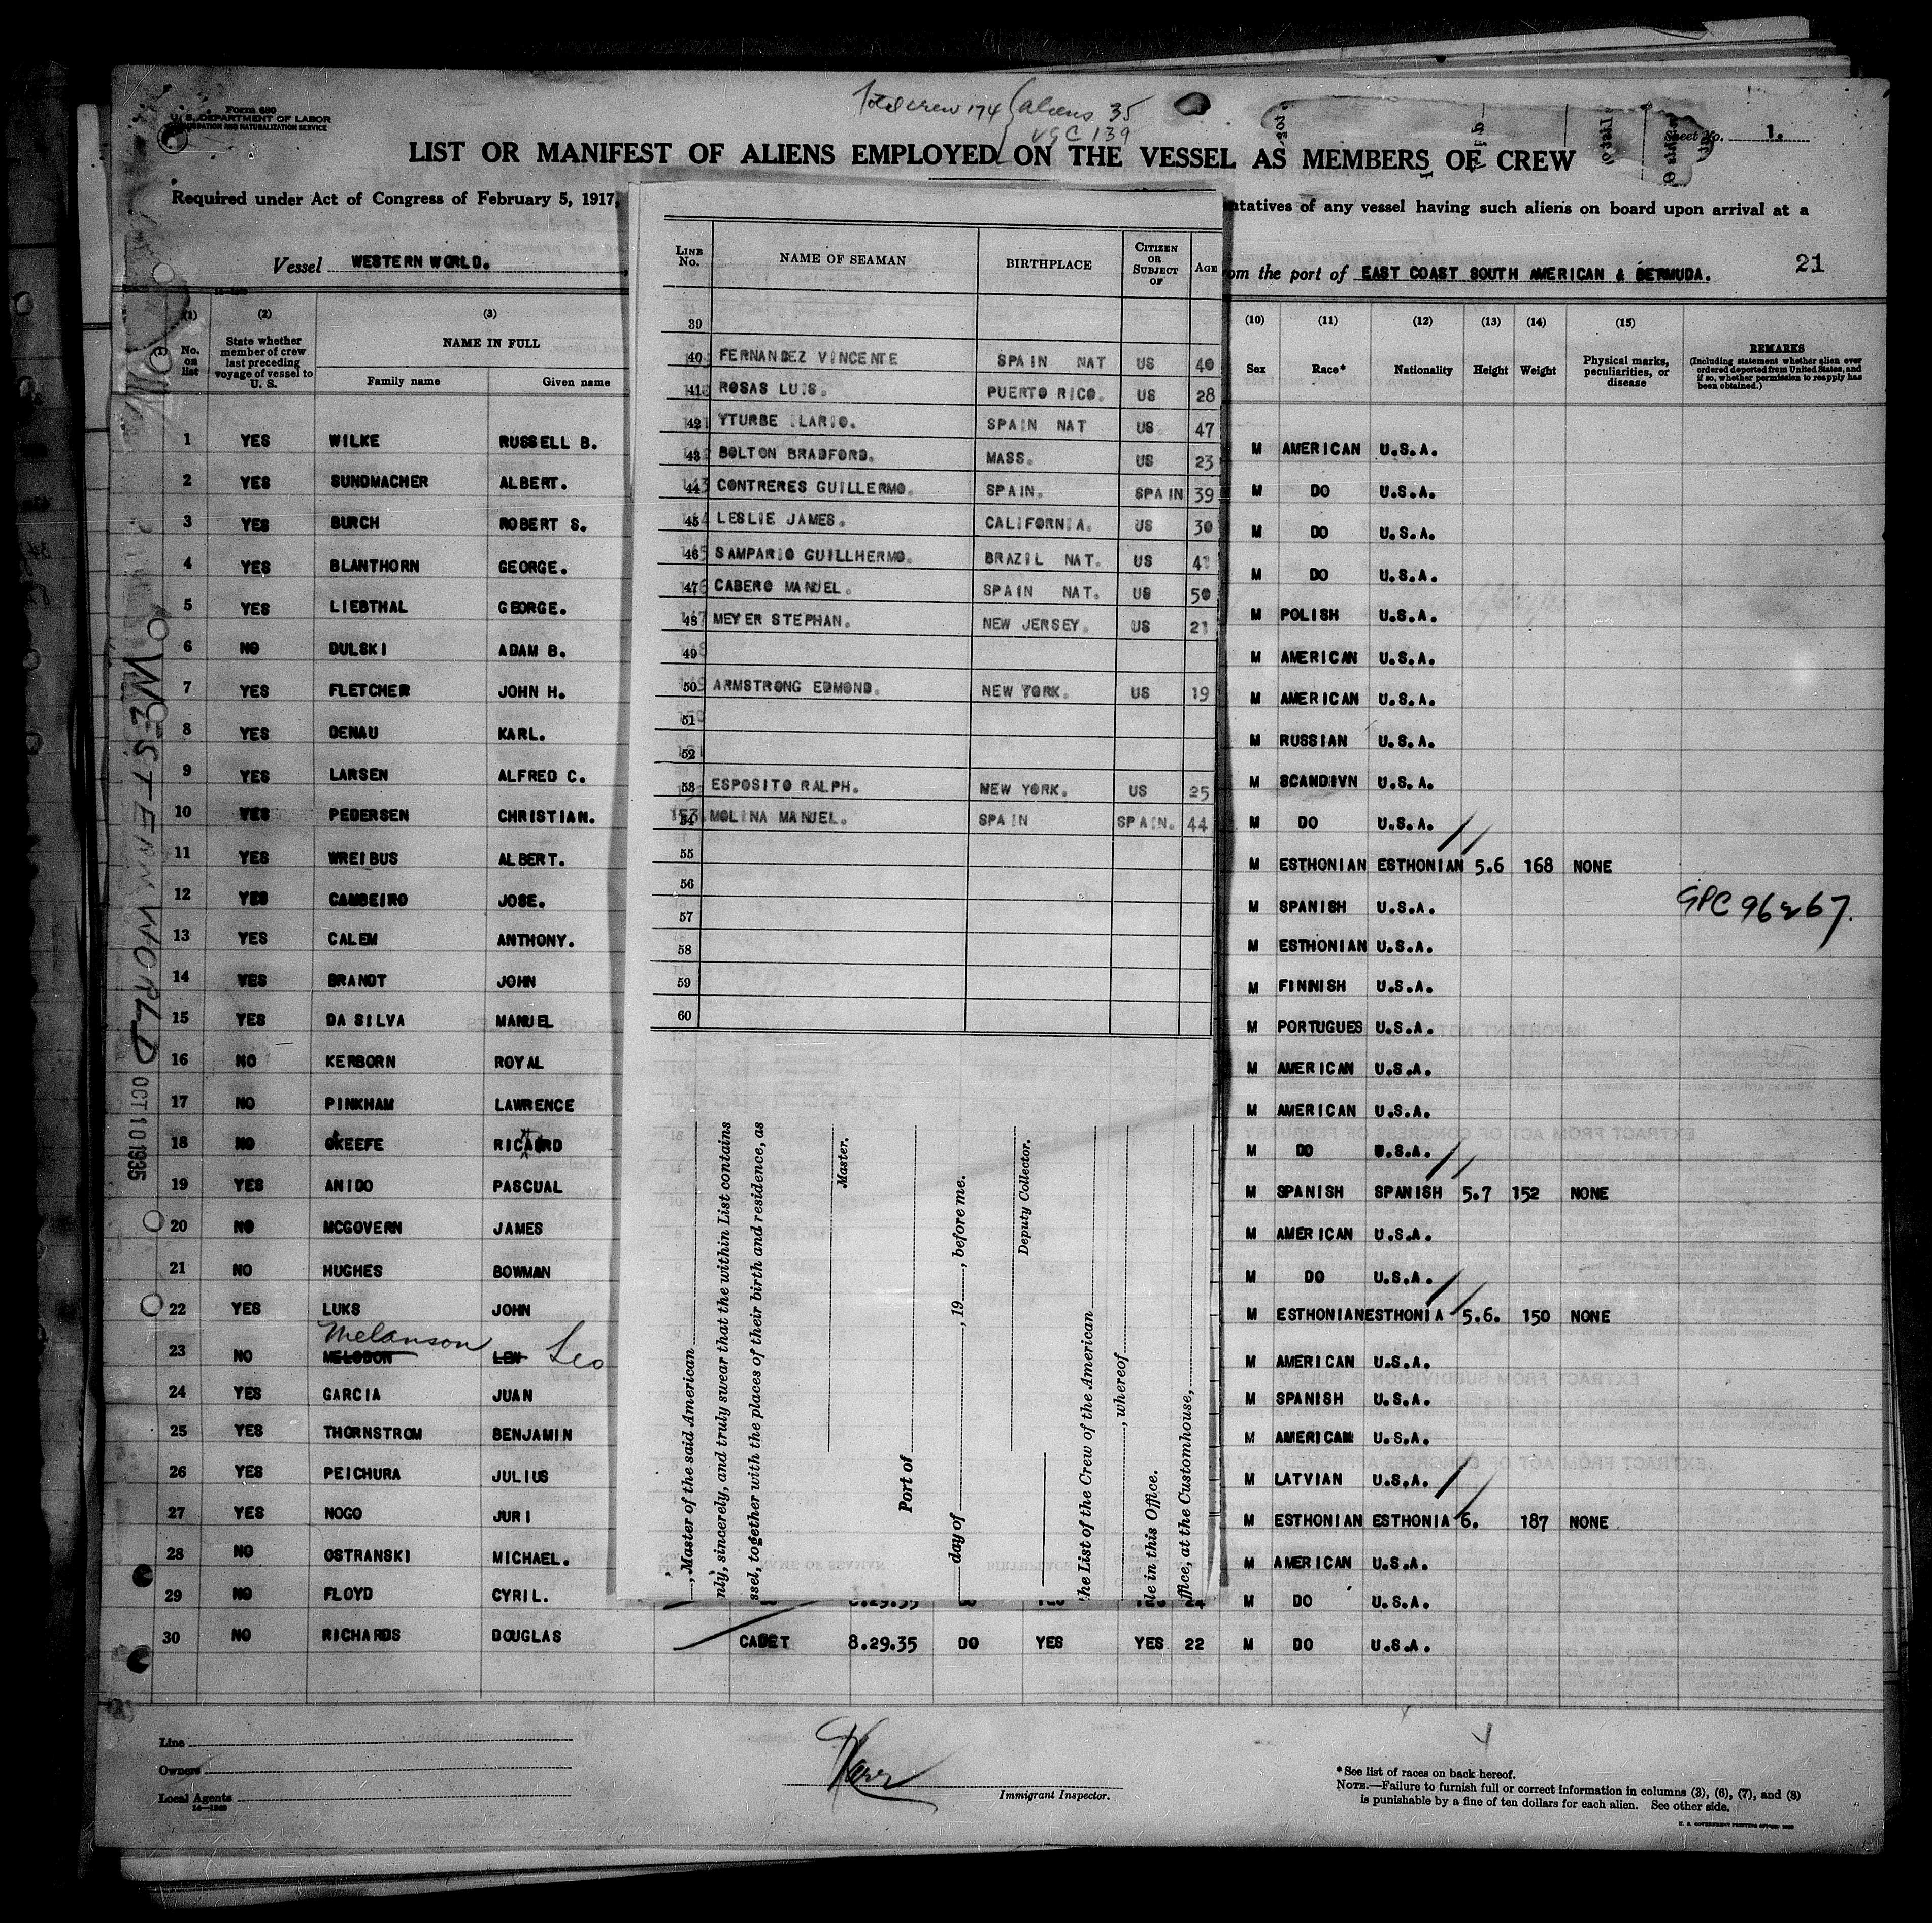 Form 680
U. S. DEPARTMENT OF LABOR
IMMIGRATION AND NATURALIZATION SERVICE
Total crew 174 aliens 35
USC 139
Sheet No. 1.
LIST OR MANIFEST OF ALIENS EMPLOYED ON THE VESSEL AS MEMBERS OF CREW
Required under Act of Congress of February 5, 1917,
ntatives of any vessel having such aliens on board upon arrival at a
Vessel WESTERN WORLD.
om the port of EAST COAST SOUTH AMERICAN & BERMUDA. 21
(1) (2) (3)
No. on list
State whether member of crew last preceding voyage of vessel to U. S.
NAME IN FULL
Family name Given name
1 YES WILKE RUSSELL B.
2 YES SUNDMACHER ALBERT.
3 YES BURCH ROBERT S.
4 YES BLANTHORN GEORGE.
5 YES LIEBTHAL GEORGE.
6 NO DULSKI ADAM B.
7 YES FLETCHER JOHN H.
8 YES DENAU KARL.
9 YES LARSEN ALFRED C.
10 YES PEDERSEN CHRISTIAN.
11 YES WREIBUS ALBERT.
12 YES CAMBEIRO JOSE.
13 YES CALEM ANTHONY.
14 YES BRANDT JOHN
15 YES DA SILVA MANUEL
16 NO KERBORN ROYAL
17 NO PINKHAM LAWRENCE
18 NO OKEEFE RICARD
19 YES ANIDO PASCUAL
20 NO MCGOVERN JAMES
21 NO HUGHES BOWMAN
22 YES LUKS JOHN
Melanson
23 NO MELODON LEW Leo
24 YES GARCIA JUAN
25 YES THORNSTROM BENJAMIN
26 YES PEICHURA JULIUS
27 YES NOGO JURI
28 NO OSTRANSKI MICHAEL.
29 NO FLOYD CYRIL.
30 NO RICHARDS DOUGLAS CADET 8.29.35 DO YES YES 22 M DO U.S.A.
LINE No. NAME OF SEAMAN BIRTHPLACE CITIZEN OR SUBJECT OF AGE
39
40 FERNANDEZ VINCENTE SPAIN NAT US 40
41 ROSAS LUIS. PUERTO RICO. US 28
42 YTURBE ILARIO. SPAIN NAT US. 47
43 BOLTON BRADFORD. MASS. US 23
44 CONTRERES GUILLERMO. SPAIN. SPAIN 39
45 LESLIE JAMES. CALIFORNIA. US 30
46 SAMPARIO GUILLHERMO. BRAZIL NAT. US 41
47 CABERO MANUEL. SPAIN NAT. US 50
48 MEYER STEPHAN. NEW JERSEY. US 21
49
50 ARMSTRONG EDMOND. NEW YORK. US 19
51
52
53 ESPOSITO RALPH. NEW YORK. US 25
54 MOLINA MANUEL. SPAIN SPAIN. 44
55
56
57
58
59
60
, Master of the said American
nly, sincerely, and truly swear that the within List contains
ssel, together with the places of their birth and residence, as
Master.
Port of
day of , 19 , before me.
Deputy Collector.
he List of the Crew of the American
, whereof
le in this Office.
ffice, at the Customhouse,
(10) (11) (12) (13) (14) (15)
Sex Race* Nationality Height Weight
Physical marks, peculiarities, or disease
REMARKS
(Including statement whether alien ever ordered deported from United States, and if so, whether permission to reapply has been obtained.)
M AMERICAN U.S.A.
M DO U.S.A.
M DO U.S.A.
M DO U.S.A.
M POLISH U.S.A.
M AMERICAN U.S.A.
M AMERICAN U.S.A.
M RUSSIAN U.S.A.
M SCANDIVN U.S.A.
M DO U.S.A.
M ESTHONIAN ESTHONIAN 5.6 168 NONE
M SPANISH U.S.A.
M ESTHONIAN U.S.A.
M FINNISH U.S.A.
M PORTUGUES U.S.A.
M AMERICAN U.S.A.
M AMERICAN U.S.A.
M DO U.S.A.
M SPANISH SPANISH 5.7 152 NONE
M AMERICAN U.S.A.
M DO U.S.A.
M ESTHONIAN ESTHONIA 5.6. 150 NONE
M AMERICAN U.S.A.
M SPANISH U.S.A.
M AMERICAN U.S.A.
M LATVIAN U.S.A.
M ESTHONIAN ESTHONIA 6. 187 NONE
M AMERICAN U.S.A.
M DO U.S.A.
WESTERN WORLD
OCT 10 1935
Line
Owners
Local Agents
Immigrant Inspector.
*See list of races on back hereof.
NOTE.—Failure to furnish full or correct information in columns (3), (6), (7), and (8)
is punishable by a fine of ten dollars for each alien. See other side.